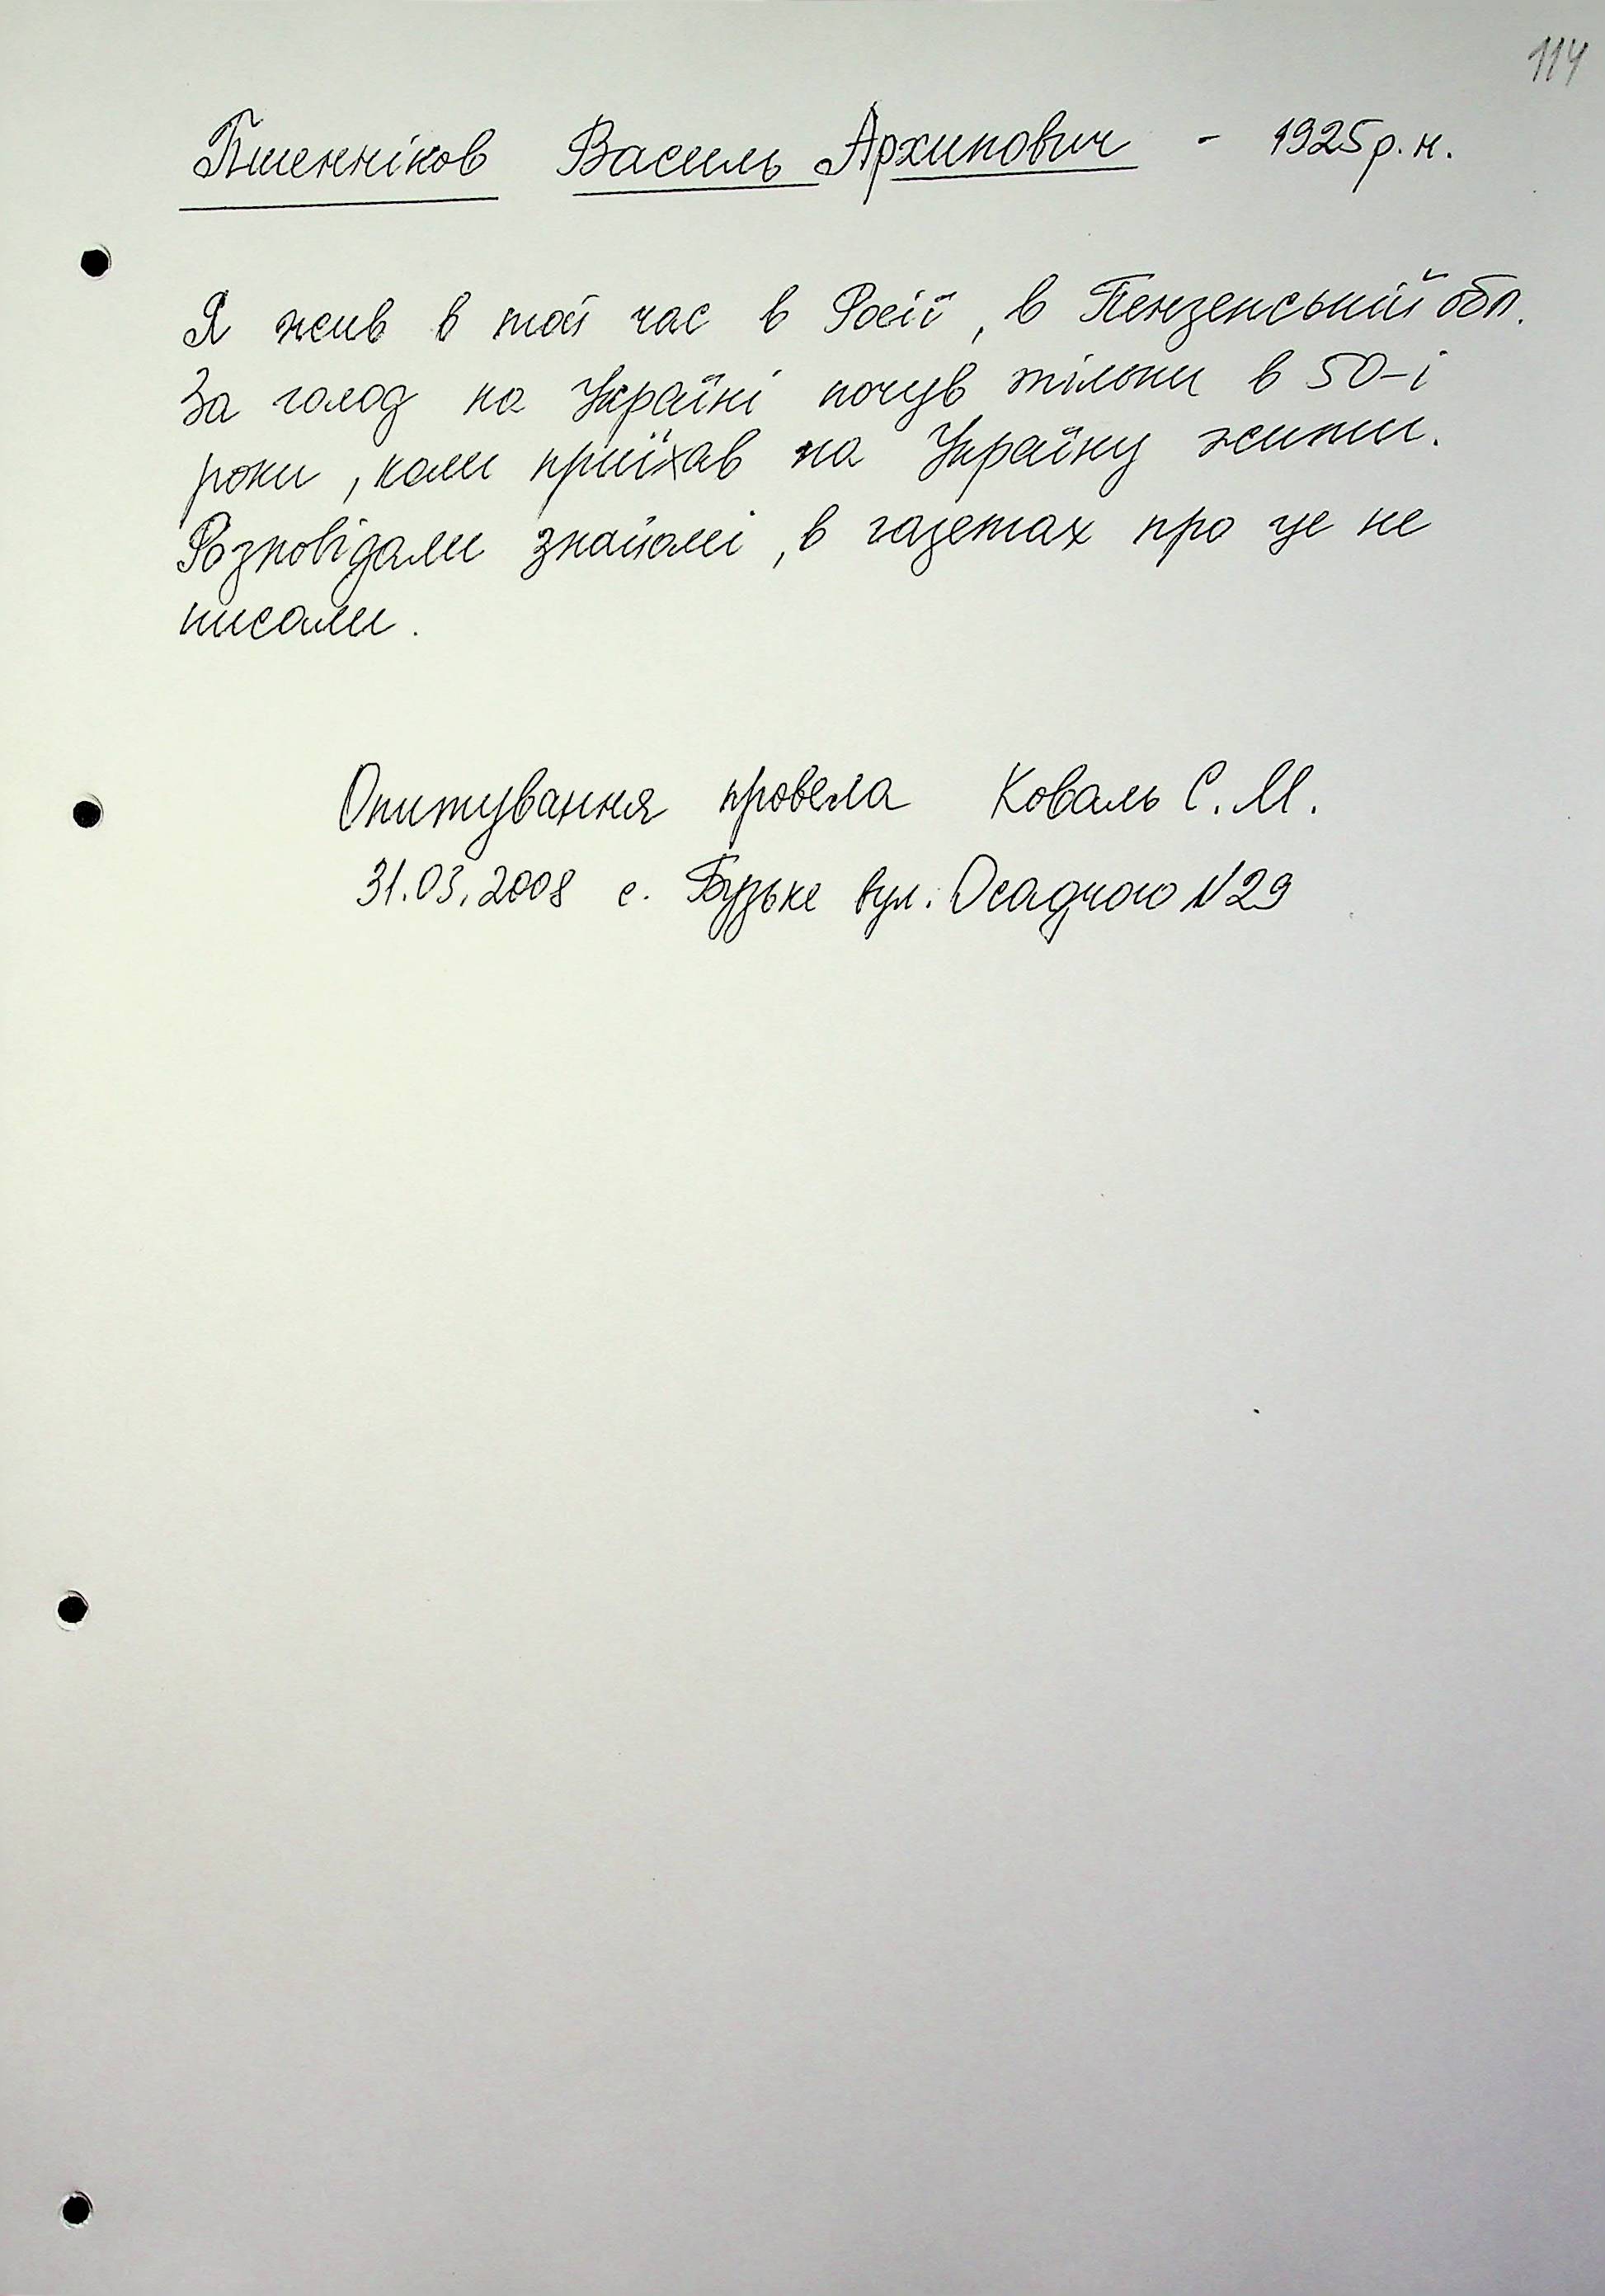 114
Пшенніков Василь Архипович - 1925 р.н.
Я жив в той час в Росії, в Пензенській обл.
За голод на Україні почув тільки в 50-і
роки, коли приїхав на Україну жити.
Розповідали знайомі, в газетах про це не
писали.
Опитування провела Коваль С.М.
31.03.2008 с. Бузьке вул. Осадчого №29